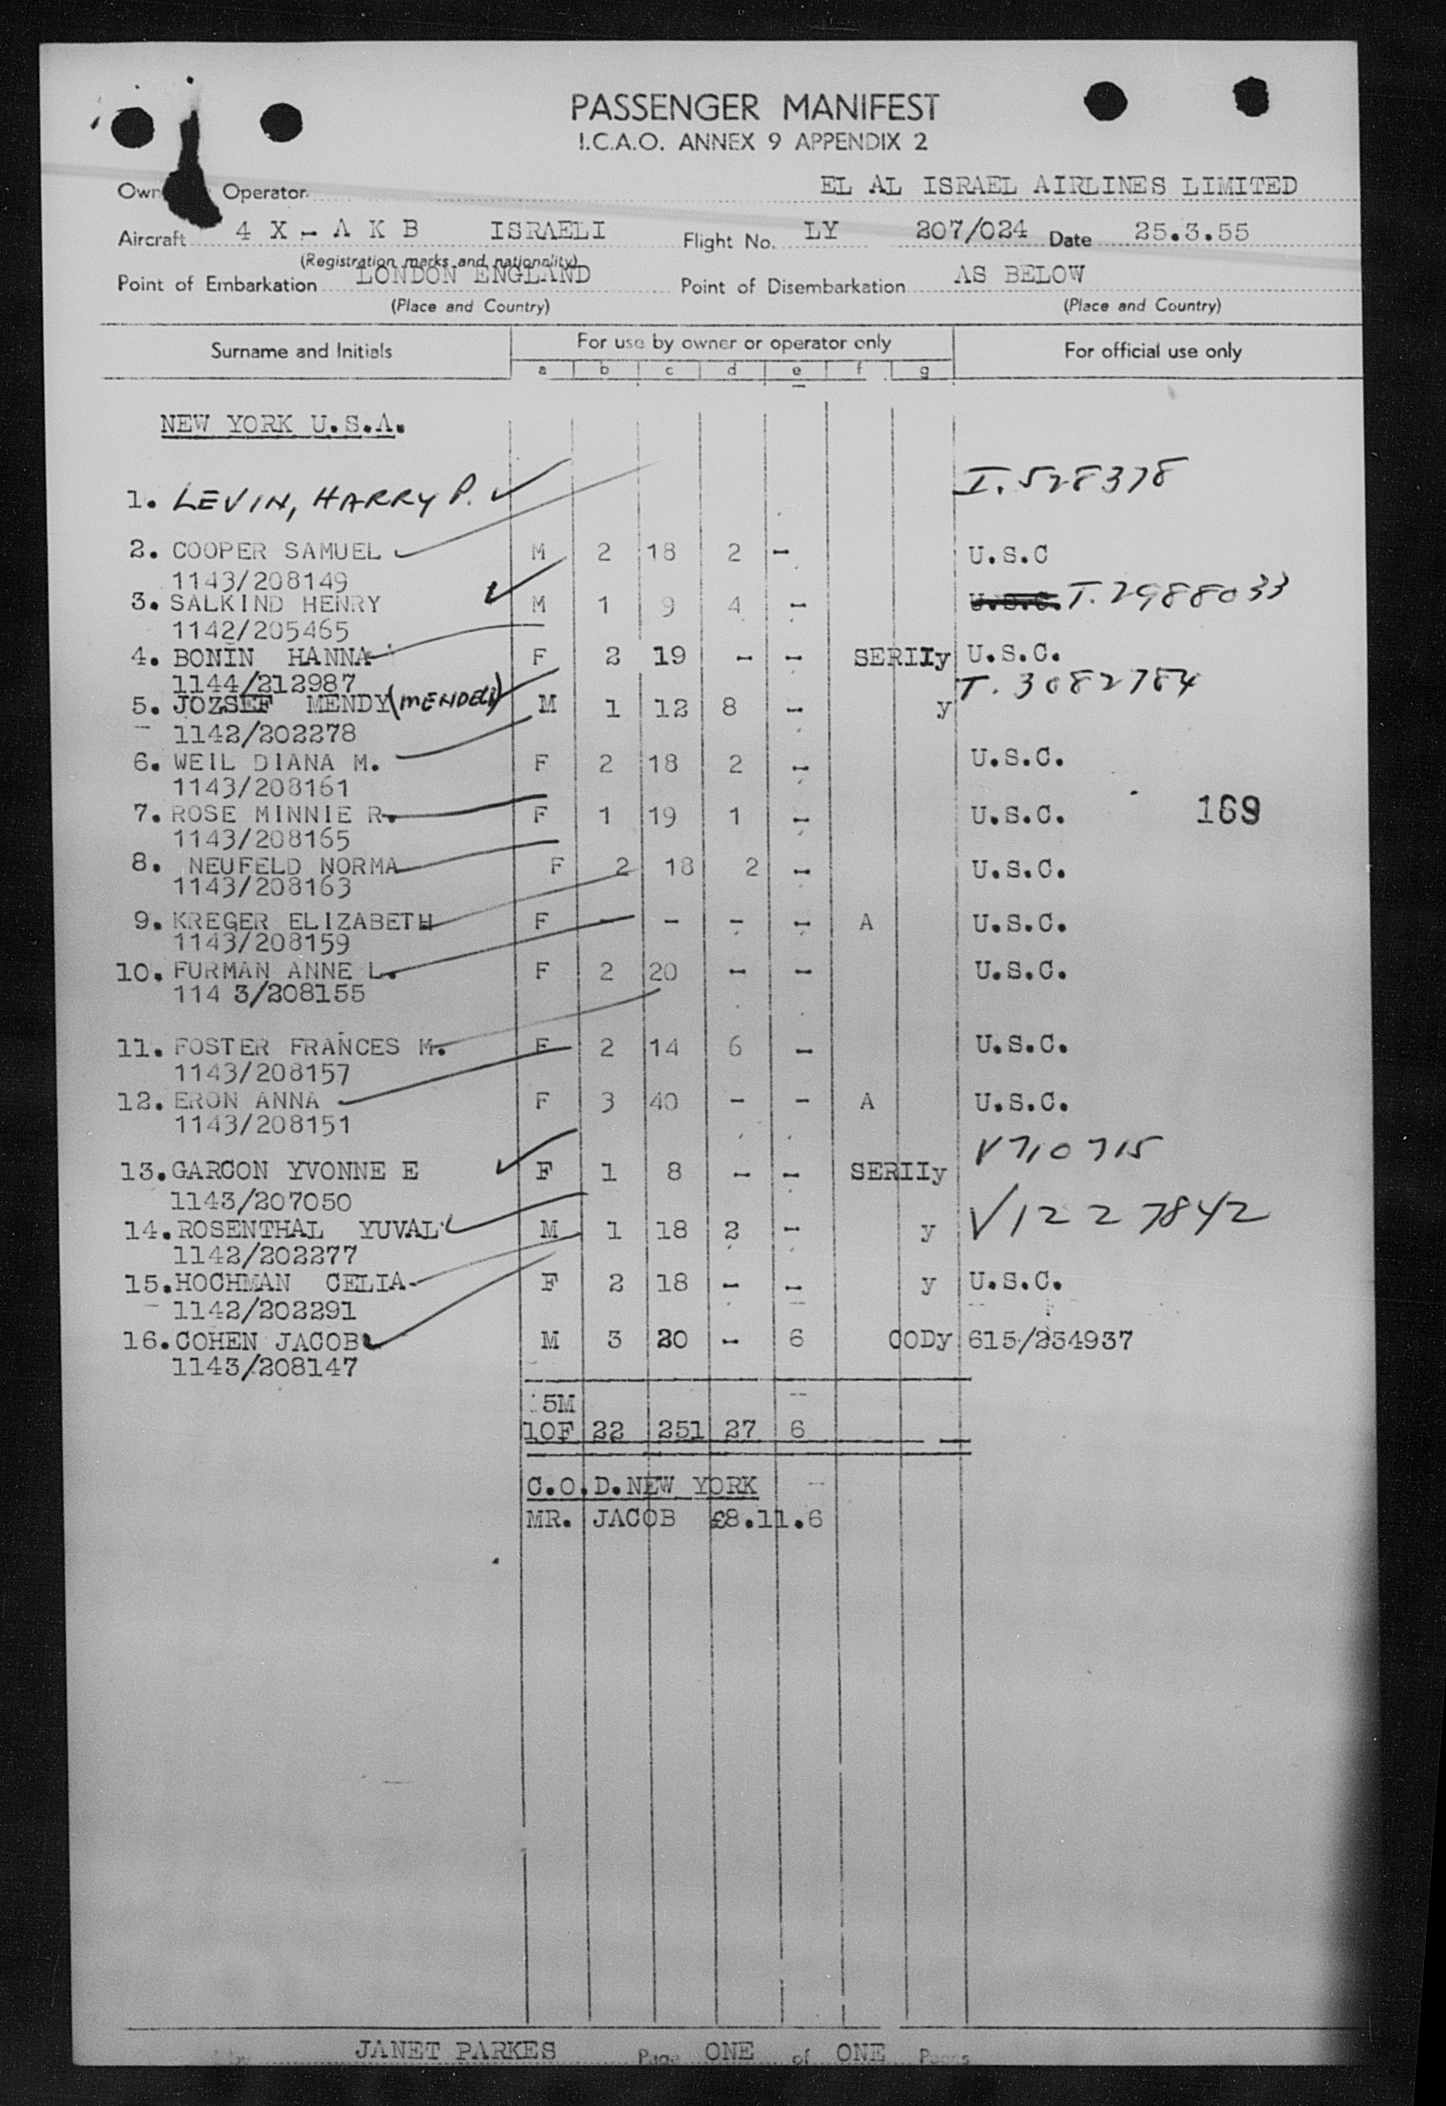 PASSENGER MANIFEST
I.C.A.O. ANNEX 9 APPENDIX 2
Operator EL AL ISRAEL AIRLINES LIMITED
Aircraft 4 X - A K B ISRAELI Flight No. LY 207/024 Date 25.3.55
(Registration marks and nationality)
Point of Embarkation LONDON ENGLAND Point of Disembarkation AS BELOW
(Place and Country) (Place and Country)
Surname and Initials For use by owner or operator only For official use only
a b c d e f g
NEW YORK U.S.A.
1. LEVIN, HARRY P. I. 528378
2. COOPER SAMUEL M 2 18 2 - U.S.C
1143/208149
3. SALKIND HENRY M 1 9 4 - U.S.C. T. 2988033
1142/205465
4. BONIN HANNA F 2 19 - - SERIIy U.S.C.
1144/212987 T. 3082784
5. JOZSEF MENDY (MENDELI) M 1 12 8 - y
- 1142/202278
6. WEIL DIANA M. F 2 18 2 - U.S.C.
1143/208161
7. ROSE MINNIE R. F 1 19 1 - U.S.C. 169
1143/208165
8. NEUFELD NORMA F 2 18 2 - U.S.C.
1143/208163
9. KREGER ELIZABETH F - - - - A U.S.C.
1143/208159
10. FURMAN ANNE L. F 2 20 - - U.S.C.
114 3/208155
11. FOSTER FRANCES M. F 2 14 6 - U.S.C.
1143/208157
12. ERON ANNA F 3 40 - - A U.S.C.
1143/208151
13. GARCON YVONNE E F 1 8 - - SERIIy V710715
1143/207050
14. ROSENTHAL YUVAL M 1 18 2 - y V1227842
1142/202277
15. HOCHMAN CELIA F 2 18 - - y U.S.C.
- 1142/202291
16. COHEN JACOB M 3 20 - 6 CODy 615/234937
1143/208147
5M
10F 22 251 27 6
C.O.D. NEW YORK
MR. JACOB £8.11.6
JANET PARKES Page ONE of ONE Pages